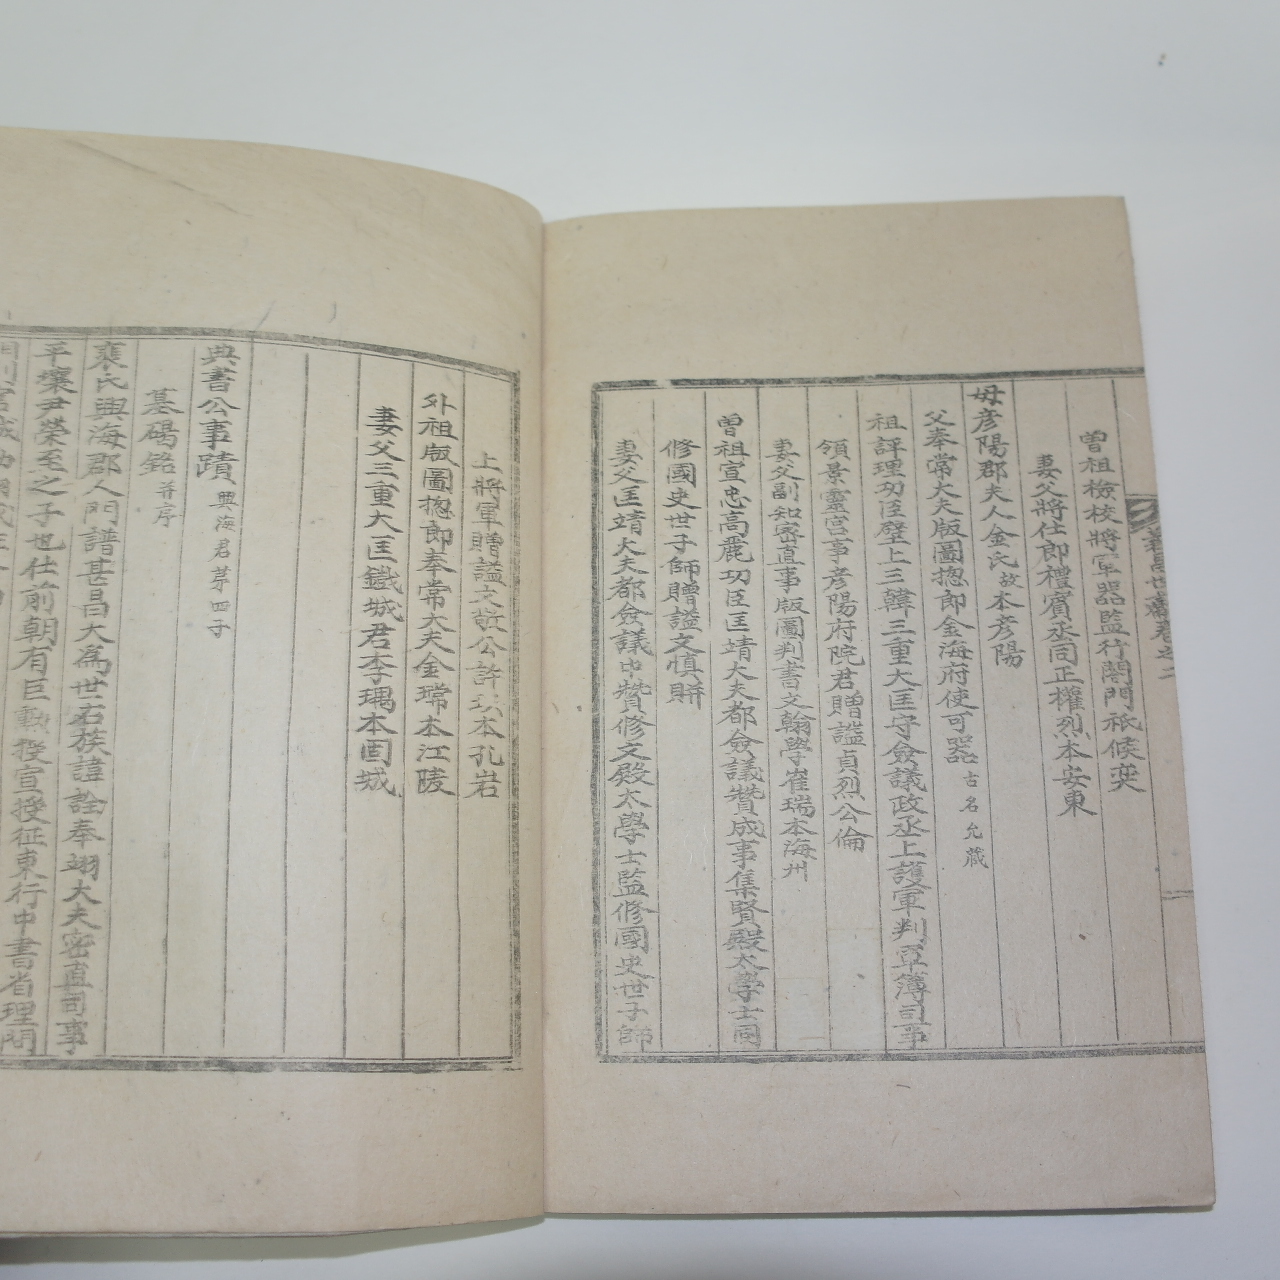 曾祖檢校將軍器監行閤門祗候奕
妻父將仕郎禮賓丞同正權烈本安東
母彦陽郡夫人金氏故本彦陽
父奉常大夫版圖摠郎金海府使可器古名允藏
祖評理功臣壁上三韓三重大匡守僉議政丞上護軍判軍簿司事
領景靈宮事彦陽府院君贈謚貞烈公倫
妻父副知密直事版圖判書文翰學崔瑞本海州
曾祖宣忠高麗功臣匡靖大夫都僉議贊成事集賢殿太學士同
修國史世子師贈謚文愼賆
妻父匡靖大夫都僉議中贊修文殿太學士監修國史世子師
上將軍贈謚文敬公許珙本孔岩
外祖版圖摠郎奉常大夫金瑺本江陵
妻父三重大匡鐵城君李瑀本固城
典書公事蹟興海君苐四子
墓碣銘并序
裵氏興海郡人門譜甚昌大為世右族諱詮奉翊大夫密直司事
平壤尹榮至之子也仕前朝有巨勳授宣授征東行中書省理問